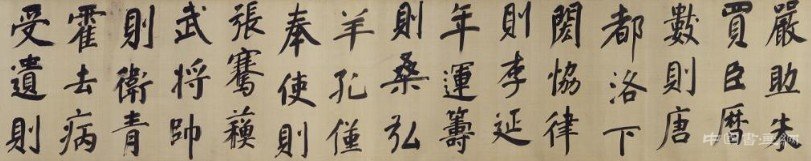 嚴助朱
買臣曆
數則唐
都洛下
閎協律
則李延
年運籌
則桑弘
羊孔僅
奉使則
張騫蘇
武將帥
則衛青
霍去病
受遺則